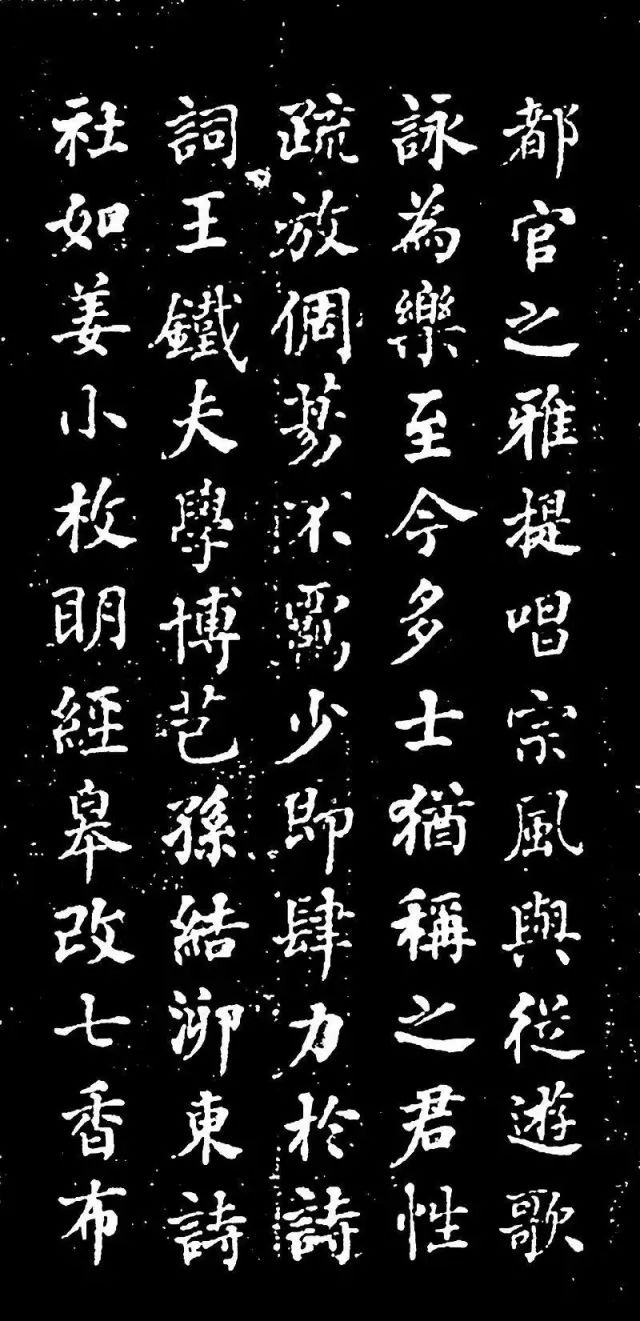 都官之雅提唱宗風與從遊歌
詠為樂至今多士猶稱之君性
疏放倜蕩不羈少即肆力於詩
詞王鐵夫學博芑孫結泖東詩
社如姜小枚明經皋改七香布